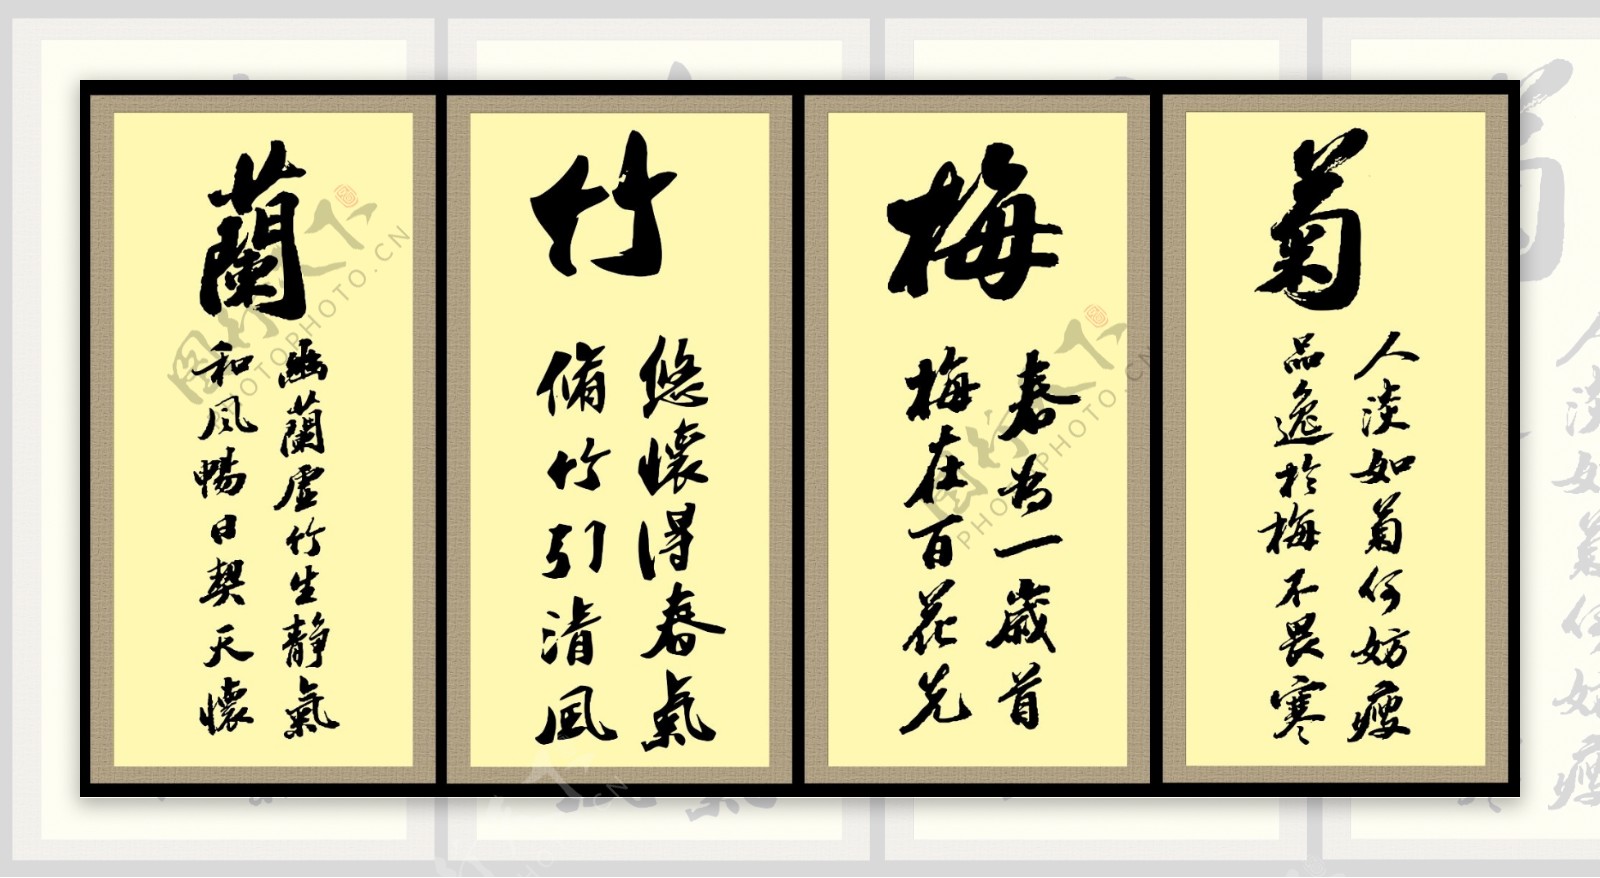 蘭
幽蘭虛竹生靜氣
和風暢日契天懷
竹
悠懷得春氣
脩竹引清風
梅
春為一歲首
梅在百花先
菊
人淡如菊何妨瘦
品逸於梅不畏寒
图行天下
PHOTOPHOTO.CN